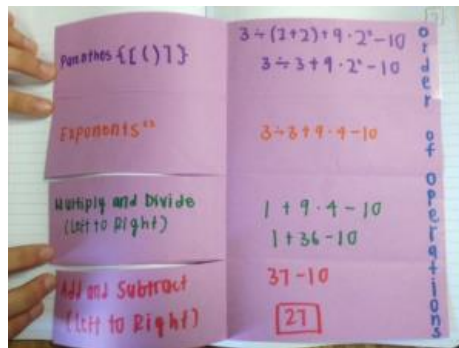 3÷(2+2)+9·2²-10
Parenthes {[()]}
3÷3+9·2²-10
Exponents²²
3÷3+9·4-10
Multiply and Divide
(Left to Right)
1+9·4-10
1+36-10
Add and Subtract
(Left to Right)
37-10
27
order of operations